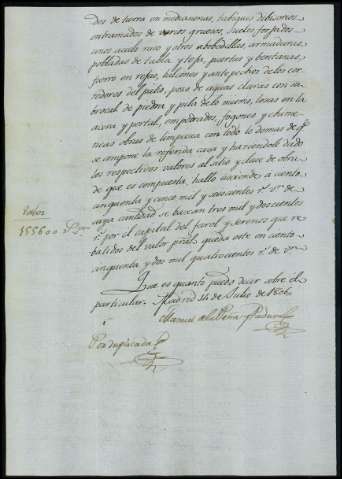 dos de tierra en medianerias, tabiques divisorios
entramados de varios gruesos, suelos forjados
unos a cielo raso y otros a bobedillas, armaduras
pobladas de tabla y teja, puertas y ventanas,
yerro en rejas, balcones y antepechos de los cor-
redores del patio, pozo de aguas claras con su
brocal de piedra y pila de lo mismo, losas en la
acera y portal, empedrados, fogones y chime-
neas obras de limpieza con todo lo demas de q.e
se compone la referida casa y haviendole dado
los respectivos valores al sitio y clase de obra
de que es compuesta, hallo asciende a ciento
cinquenta y cinco mil y seiscientos r.s v.n de
cuya cantidad se baxan tres mil y doscientos
r.s por el capital del farol y sereno que re-
batidos del valor pral. queda este en ciento
cinquenta y dos mil quatrocientos r.s de v.n
Valor
155600 r.s v.n
Que es quanto puedo decir sobre el
particular. Madrid 14 de Julio de 1806
Manuel de la Peña Padura
Por duplicada